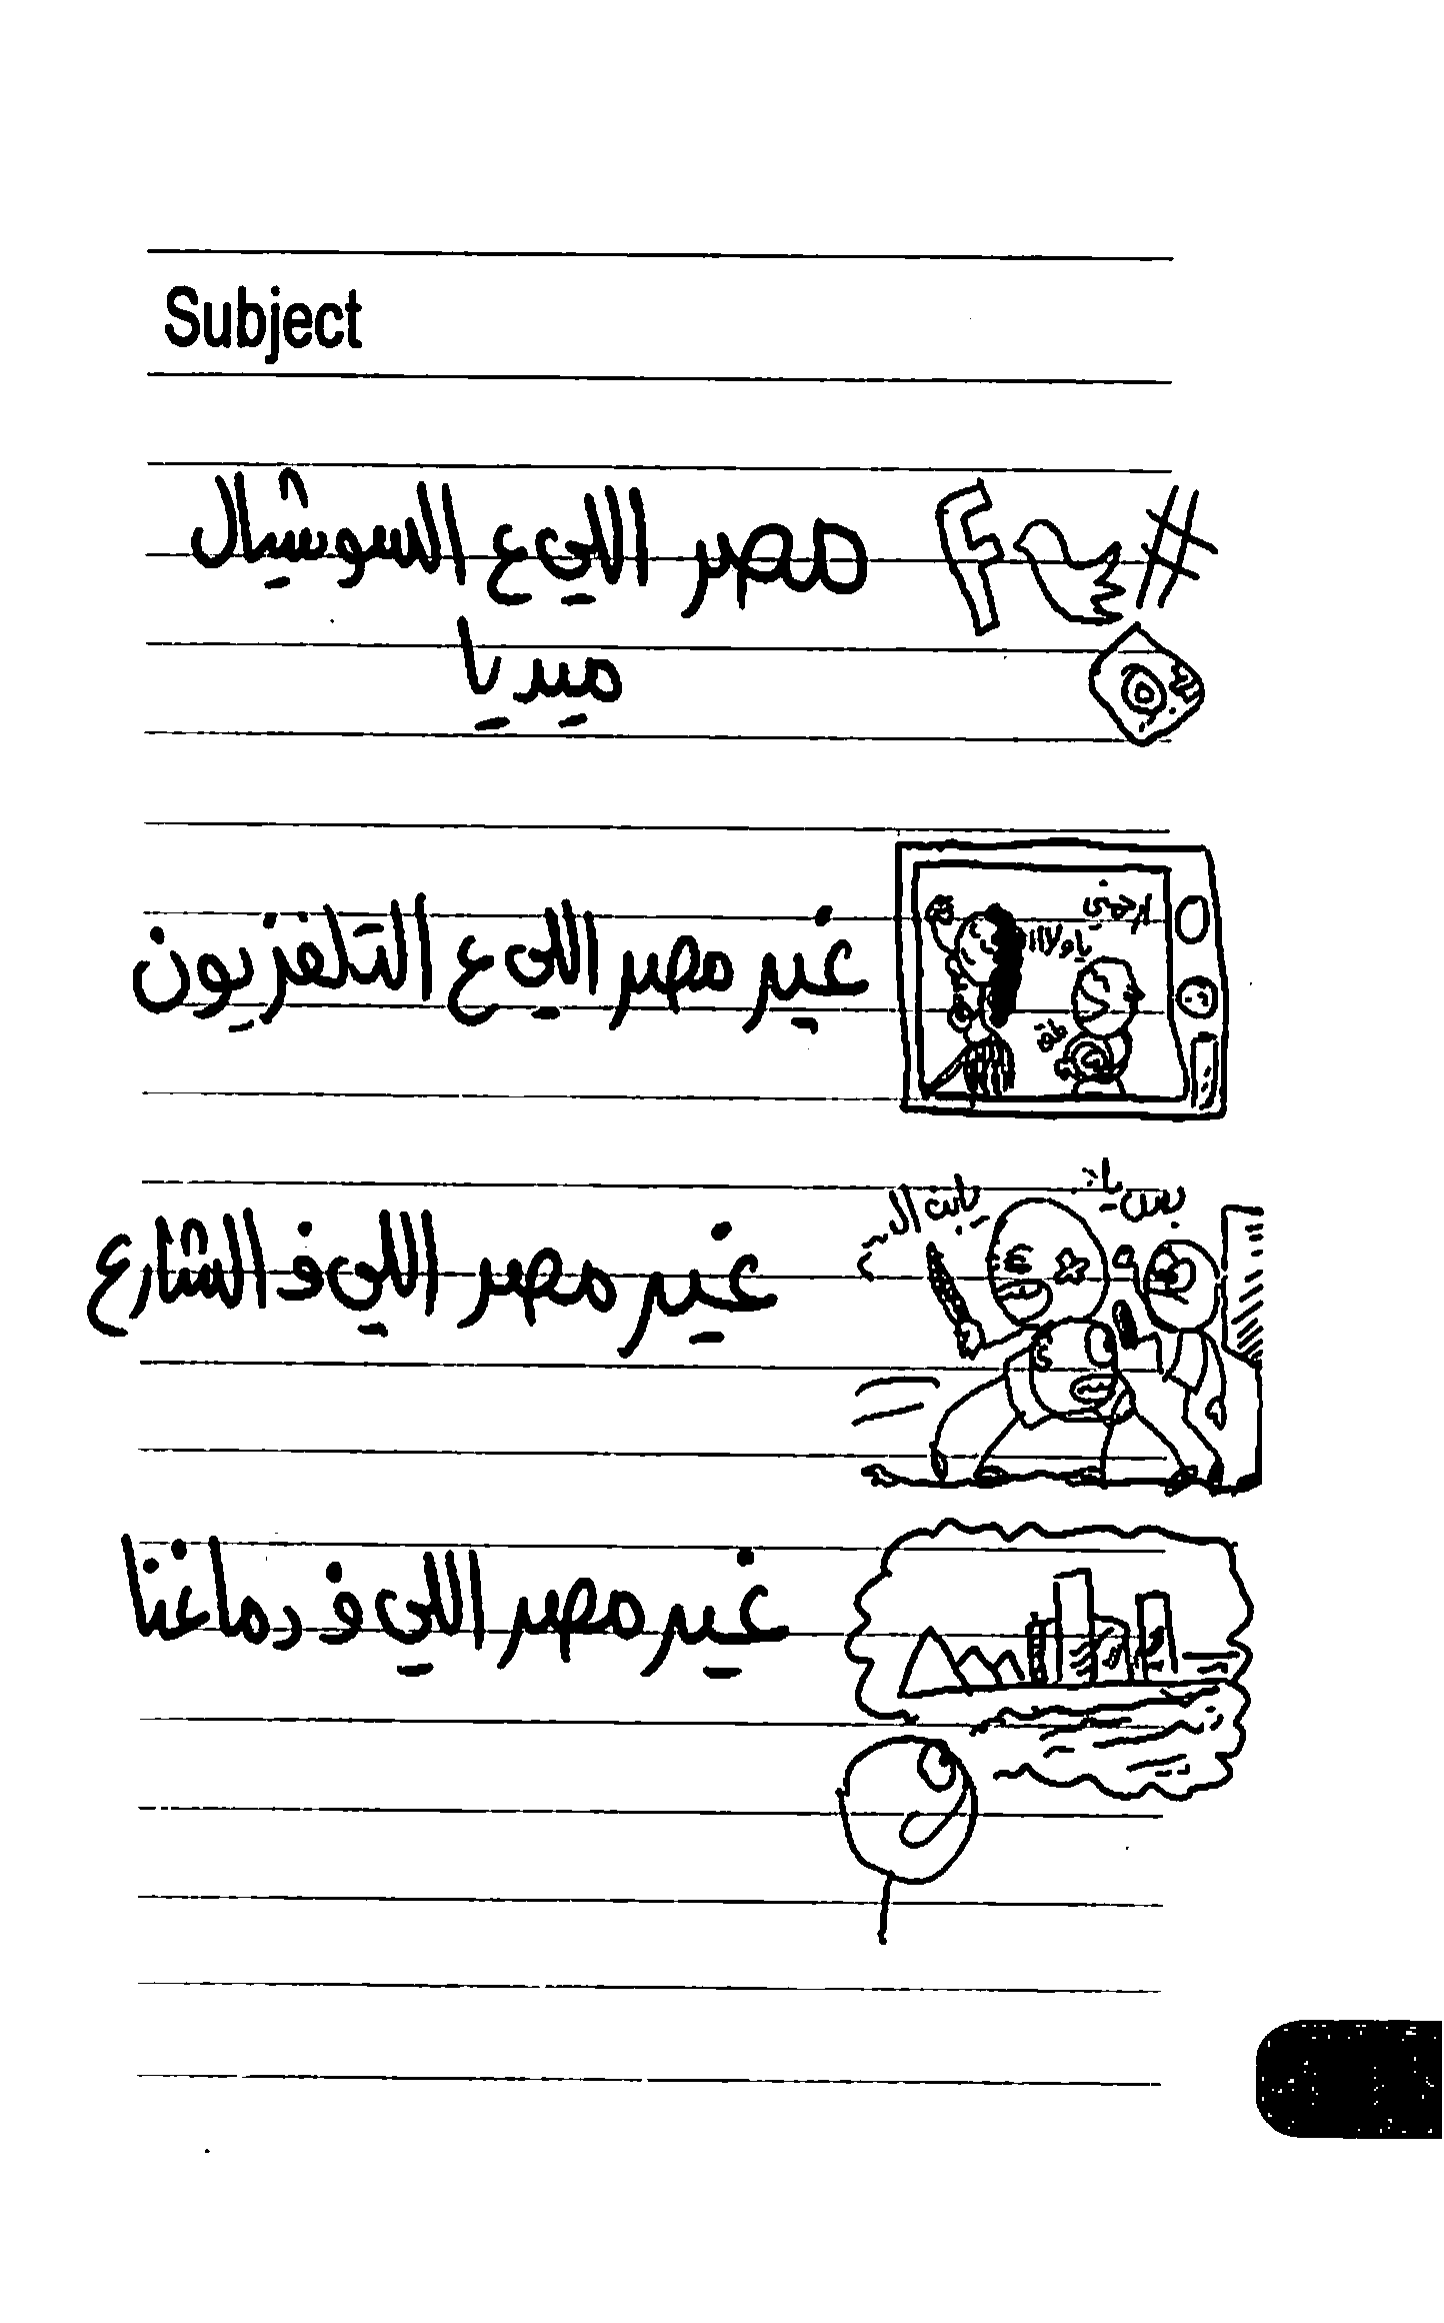 Subject
مصر اللي ع السوشيال
ميديا
غير مصر اللي ع التلفزيون
ارقصي
يا ولااا
غير مصر اللي ف الشارع
يابن ال
غير مصر اللي ف دماغنا